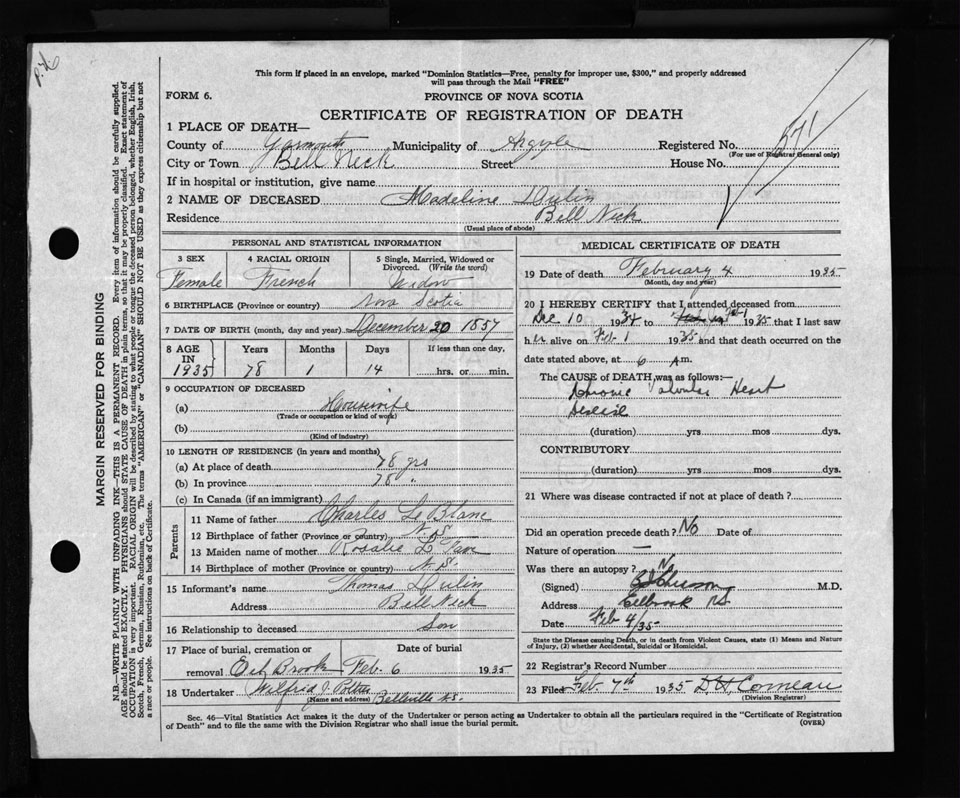 This form if placed in an envelope, marked "Dominion Statistics—Free, penalty for improper use, $300," and properly addressed
will pass through the Mail "FREE"
FORM 6.
PROVINCE OF NOVA SCOTIA
CERTIFICATE OF REGISTRATION OF DEATH
571
1 PLACE OF DEATH—
County of Yarmouth Municipality of Argyle Registered No.
(For use of Registrar General only)
City or Town Bell Neck Street House No.
If in hospital or institution, give name
2 NAME OF DECEASED Madeline Dulin
Residence Bell Neck
(Usual place of abode)
MARGIN RESERVED FOR BINDING
N.B.—WRITE PLAINLY WITH UNFADING INK—THIS IS A PERMANENT RECORD. Every item of information should be carefully supplied.
AGE should be stated EXACTLY. PHYSICIANS should STATE CAUSE OF DEATH in plain terms, so that it may be properly classified. Exact statement of
OCCUPATION is very important. RACIAL ORIGIN will be described by stating to what people or tongue the deceased person belonged, whether English, Irish,
Scotch, French, German, Russian, Ruthenian, etc. The terms "AMERICAN" or "CANADIAN" SHOULD NOT BE USED as they express citizenship but not
a race or people. See instructions on back of Certificate.
PERSONAL AND STATISTICAL INFORMATION
3 SEX 4 RACIAL ORIGIN 5 Single, Married, Widowed or
Divorced. (Write the word)
Female French Widow
6 BIRTHPLACE (Province or country) Nova Scotia
7 DATE OF BIRTH (month, day and year) December 20 1857
8 AGE Years Months Days If less than one day,
IN
1935 78 1 14 hrs. or min.
9 OCCUPATION OF DECEASED
(a) Housewife
(Trade or occupation or kind of work)
(b)
(Kind of industry)
10 LENGTH OF RESIDENCE (in years and months)
(a) At place of death 78 yrs
(b) In province 78 "
(c) In Canada (if an immigrant)
Parents
11 Name of father Charles Le Blanc
12 Birthplace of father (Province or country) N.S.
13 Maiden name of mother Rosalie
14 Birthplace of mother (Province or country) N.S.
15 Informant's name Thomas Dulin
Address Bell Neck
16 Relationship to deceased Son
17 Place of burial, cremation or Date of burial
removal Eel Brook Feb. 6 1935
18 Undertaker Wilfrid J. Pottier
(Name and address) Belleville N.S.
MEDICAL CERTIFICATE OF DEATH
19 Date of death February 4 1935
(Month, day and year)
20 I HEREBY CERTIFY that I attended deceased from
Dec 10 1934 to Feb 1 1935 that I last saw
her alive on Feb 1 1935 and that death occurred on the
date stated above, at 6 A.m.
The CAUSE OF DEATH was as follows:—
Chronic Valvular Heart
Disease
(duration) yrs mos dys.
CONTRIBUTORY
(duration) yrs mos dys.
21 Where was disease contracted if not at place of death?
Did an operation precede death? No Date of
Nature of operation —
Was there an autopsy? No
(Signed) M.D.
Address Eelbrook NS
Date Feb 4/35
State the Disease causing Death, or in death from Violent Causes, state (1) Means and Nature
of Injury, (2) whether Accidental, Suicidal or Homicidal.
22 Registrar's Record Number
23 Filed Feb. 7th 1935 D H Comeau
(Division Registrar)
Sec. 46—Vital Statistics Act makes it the duty of the Undertaker or person acting as Undertaker to obtain all the particulars required in the "Certificate of Registration
of Death" and to file the same with the Division Registrar who shall issue the burial permit.
(OVER)